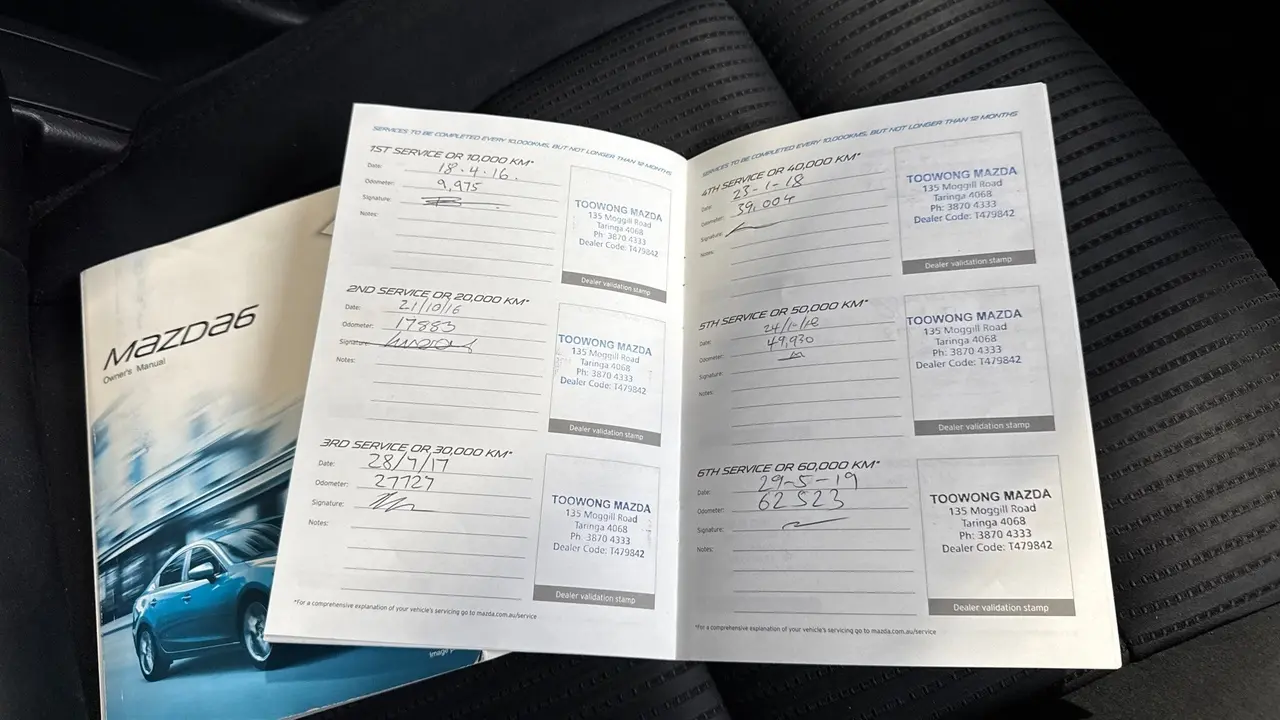 Mazda6
Owner's Manual
SERVICES TO BE COMPLETED EVERY 10,000KMS, BUT NOT LONGER THAN 12 MONTHS
1ST SERVICE OR 10,000 KM*
Date: 18.4.16.
Odometer: 9,975
Signature:
Notes:
TOOWONG MAZDA
135 Moggill Road
Taringa 4068
Ph: 3870 4333
Dealer Code: T479842
Dealer validation stamp
2ND SERVICE OR 20,000 KM*
Date: 21/10/16
Odometer: 17883
Signature:
Notes:
TOOWONG MAZDA
135 Moggill Road
Taringa 4068
Ph: 3870 4333
Dealer Code: T479842
Dealer validation stamp
3RD SERVICE OR 30,000 KM*
Date:
Odometer: 27727
Signature:
Notes:
TOOWONG MAZDA
135 Moggill Road
Taringa 4068
Ph: 3870 4333
Dealer Code: T479842
Dealer validation stamp
*For a comprehensive explanation of your vehicle's servicing go to mazda.com.au/service
SERVICES TO BE COMPLETED EVERY 10,000KMS, BUT NOT LONGER THAN 12 MONTHS
4TH SERVICE OR 40,000 KM*
Date: 23-1-18
Odometer: 39,004
Signature:
Notes:
TOOWONG MAZDA
135 Moggill Road
Taringa 4068
Ph: 3870 4333
Dealer Code: T479842
Dealer validation stamp
5TH SERVICE OR 50,000 KM*
Date:
Odometer: 49,930
Signature:
Notes:
TOOWONG MAZDA
135 Moggill Road
Taringa 4068
Ph: 3870 4333
Dealer Code: T479842
Dealer validation stamp
6TH SERVICE OR 60,000 KM*
Date: 29-5-19
Odometer: 62523
Signature:
Notes:
TOOWONG MAZDA
135 Moggill Road
Taringa 4068
Ph: 3870 4333
Dealer Code: T479842
Dealer validation stamp
*For a comprehensive explanation of your vehicle's servicing go to mazda.com.au/service
Image